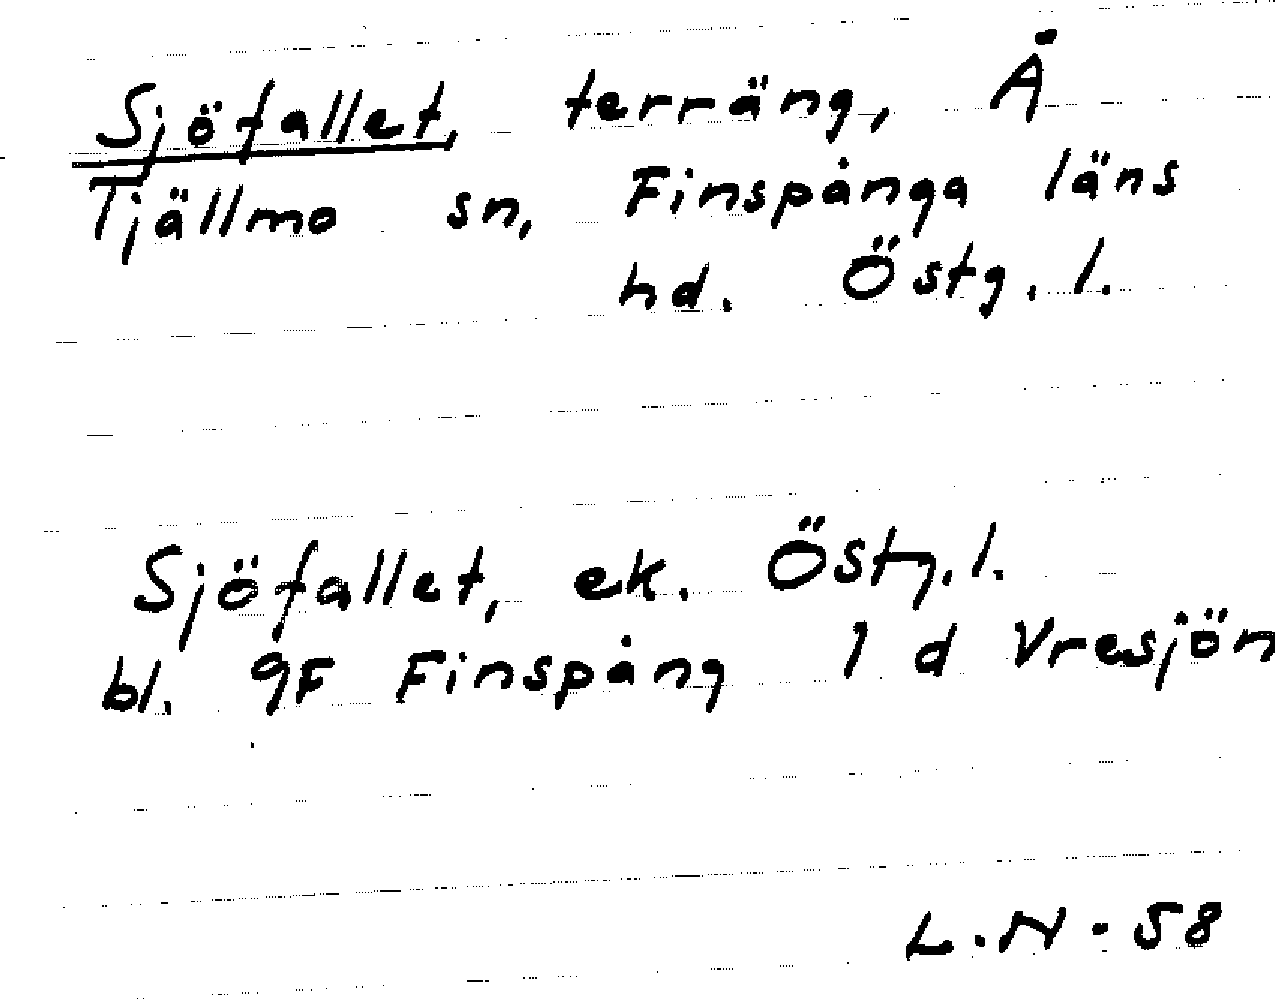 Sjöfallet, terräng, Å
Tjällmo sn, Finspånga läns
hd. Östg. l.
Sjöfallet, ek. Östg. l.
bl. 9F Finspång 1 d Vresjön
L.N. 58